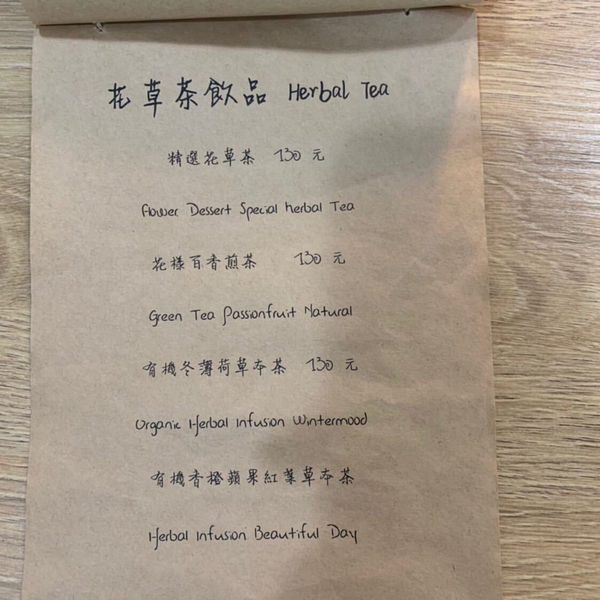 花草茶飲品 Herbal Tea
精選花草茶 130 元
Flower Dessert Special Herbal Tea
花樣百香煎茶 130 元
Green Tea Passionfruit Natural
有機冬薄荷草本茶 130 元
Organic Herbal Infusion Wintermood
有機香橙蘋果紅葉草本茶
Herbal Infusion Beautiful Day